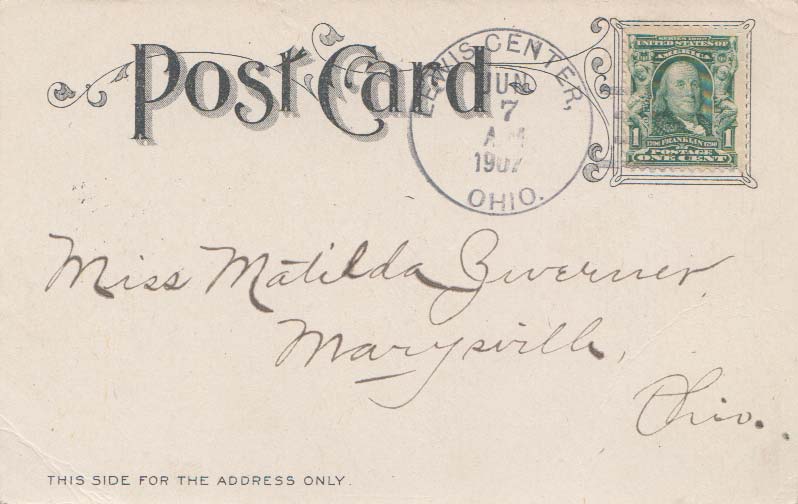 Post Card
LEWIS CENTER,
JUN
7
AM
1907
OHIO.
SERIES 1902
UNITED STATES OF
AMERICA
1 1790 FRANKLIN 1790 1
POSTAGE
ONE CENT
Miss Matilda Zwerner
Marysville,
Ohio.
THIS SIDE FOR THE ADDRESS ONLY.